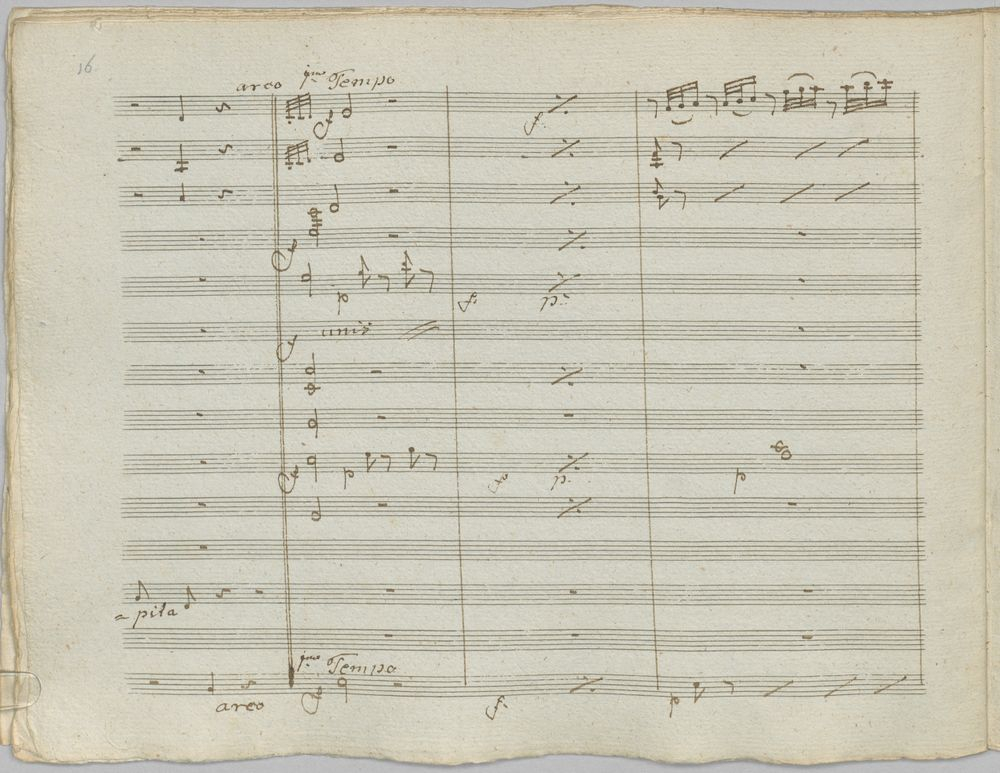 16
arco 1mo Tempo
f
f.
p
f.
p.
unis
f
p
fo
p.
p
= pita
1mo Tempo
arco
f.
p